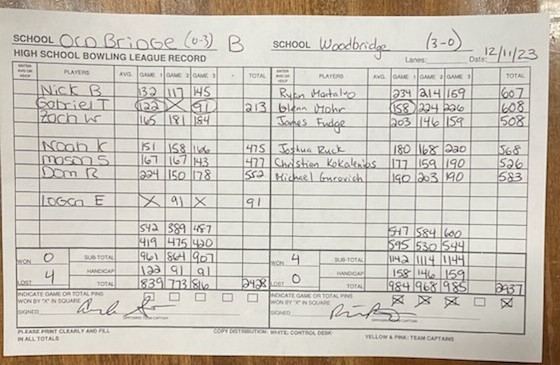 SCHOOL Old Bridge (0-3) B SCHOOL Woodbridge (3-0)
HIGH SCHOOL BOWLING LEAGUE RECORD Lanes: Date: 12/11/23
ENTER AVG OR HDCP PLAYERS AVG. GAME 1 GAME 2 GAME 3 - TOTAL ENTER AVG OR HDCP PLAYERS AVG. GAME 1 GAME 2 GAME 3 TOTAL
Nick B 132 117 145 Ryan 234 214 159 607
Gabriel T 122 X 91 213 Glenn Mohr 158 224 226 608
Zach W 165 181 184 James Fudge 203 146 159 508
Noah K 151 158 166 475 Joshua Ruck 180 168 220 568
Mason S 167 167 143 477 Christian 177 159 190 526
Dom R 224 150 178 552 Michael Gurovich 190 203 190 583
Logan E X 91 X 91
542 389 487 547 584 600
419 475 420 595 530 544
WON 0 SUB-TOTAL 961 864 907 WON 4 SUB-TOTAL 1142 1114 1144
HANDICAP 122 91 91 HANDICAP 158 146 159
LOST 4 TOTAL 839 773 816 2428 LOST 0 TOTAL 984 968 985 2937
INDICATE GAME OR TOTAL PINS WON BY "X" IN SQUARE INDICATE GAME OR TOTAL PINS WON BY "X" IN SQUARE X X X X
SIGNED OPPOSING TEAM CAPTAIN SIGNED OPPOSING TEAM CAPTAIN
PLEASE PRINT CLEARLY AND FILL IN ALL TOTALS COPY DISTRIBUTION: WHITE: CONTROL DESK YELLOW & PINK: TEAM CAPTAINS